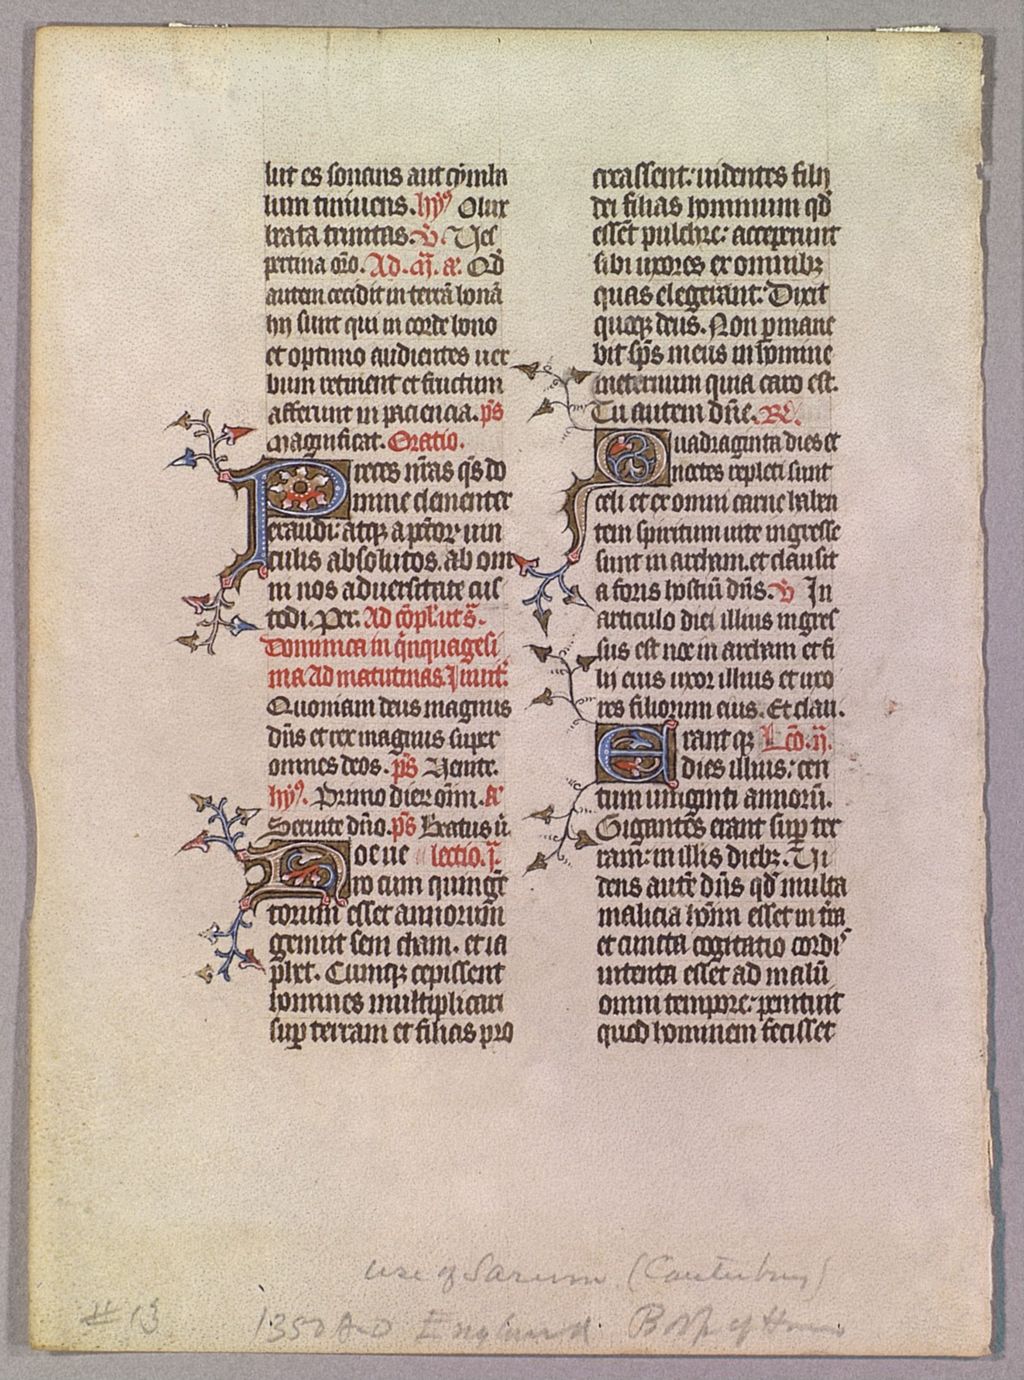 lut es sonans aut cymba
lum tinniens. hy⁹ O lux
beata trinitas. V. Ves
pertina oro. Ad. m̄. a. Qd̄
autem cecidit in terrā bonā
hij sunt qui in corde bono
et optimo audientes uer
bum retinent et fructum
afferunt in paciencia. ps̄
Magnificat. Oratio.
Preces nr̄as qs̄ do
mine clementer
exaudi: atqꝫ a pc̄tor uin
culis absolutos. ab om
ni nos aduersitate cus
todi. Per. Ad cōpl. ut s̄.
Dominica in q̄nquagesi
ma Ad matutinas. Inuit.
Quoniam deus magnus
dn̄s et rex magnus super
omnes deos. ps̄ Uenite.
hy⁹. Primo dier om̄. a
Seruite dn̄o. ps̄ Beatus ū.
Noe ue lectio. j.
ro cum quinge
torum esset annorum
genuit sem cham. et ia
phet. Cumqꝫ cepissent
homines multiplicari
suꝑ terram et filias pro
creassent: uidentes filij
dei filias hominum qd̄
essēt pulchre: acceperunt
sibi uxores ex omnibꝫ
quas elegerant. Dixit
quoqꝫ deus. Non ꝑmane
bit sp̄s meus in homine
in eternum quia caro est.
Tu autem dn̄e. R̄.
Quadraginta dies et
noctes repleti sunt
celi et ex omni carne haben
tem spiritum uite ingresse
sunt in archam. et clausit
a foris hostiū dn̄s. V In
articulo diei illius ingres
sus est noe in archam et fi
lij eius uxor illius et uxo
res filiorum eius. Et clau.
Erant qꝫ Lc̄o. ij.
dies illius: cen
tum uiginti annorū.
Gigantes erant suꝑ ter
ram: in illis diebꝫ. Ui
dens autē dn̄s qd̄ multa
malicia hōīm esset in tr̄a
et cuncta cogitatio cordis
intenta esset ad malū
omni tempore: penituit
quod hominem fecisset
use of Sarum (Canterbury)
#13 1350 A-D England Book of Hours